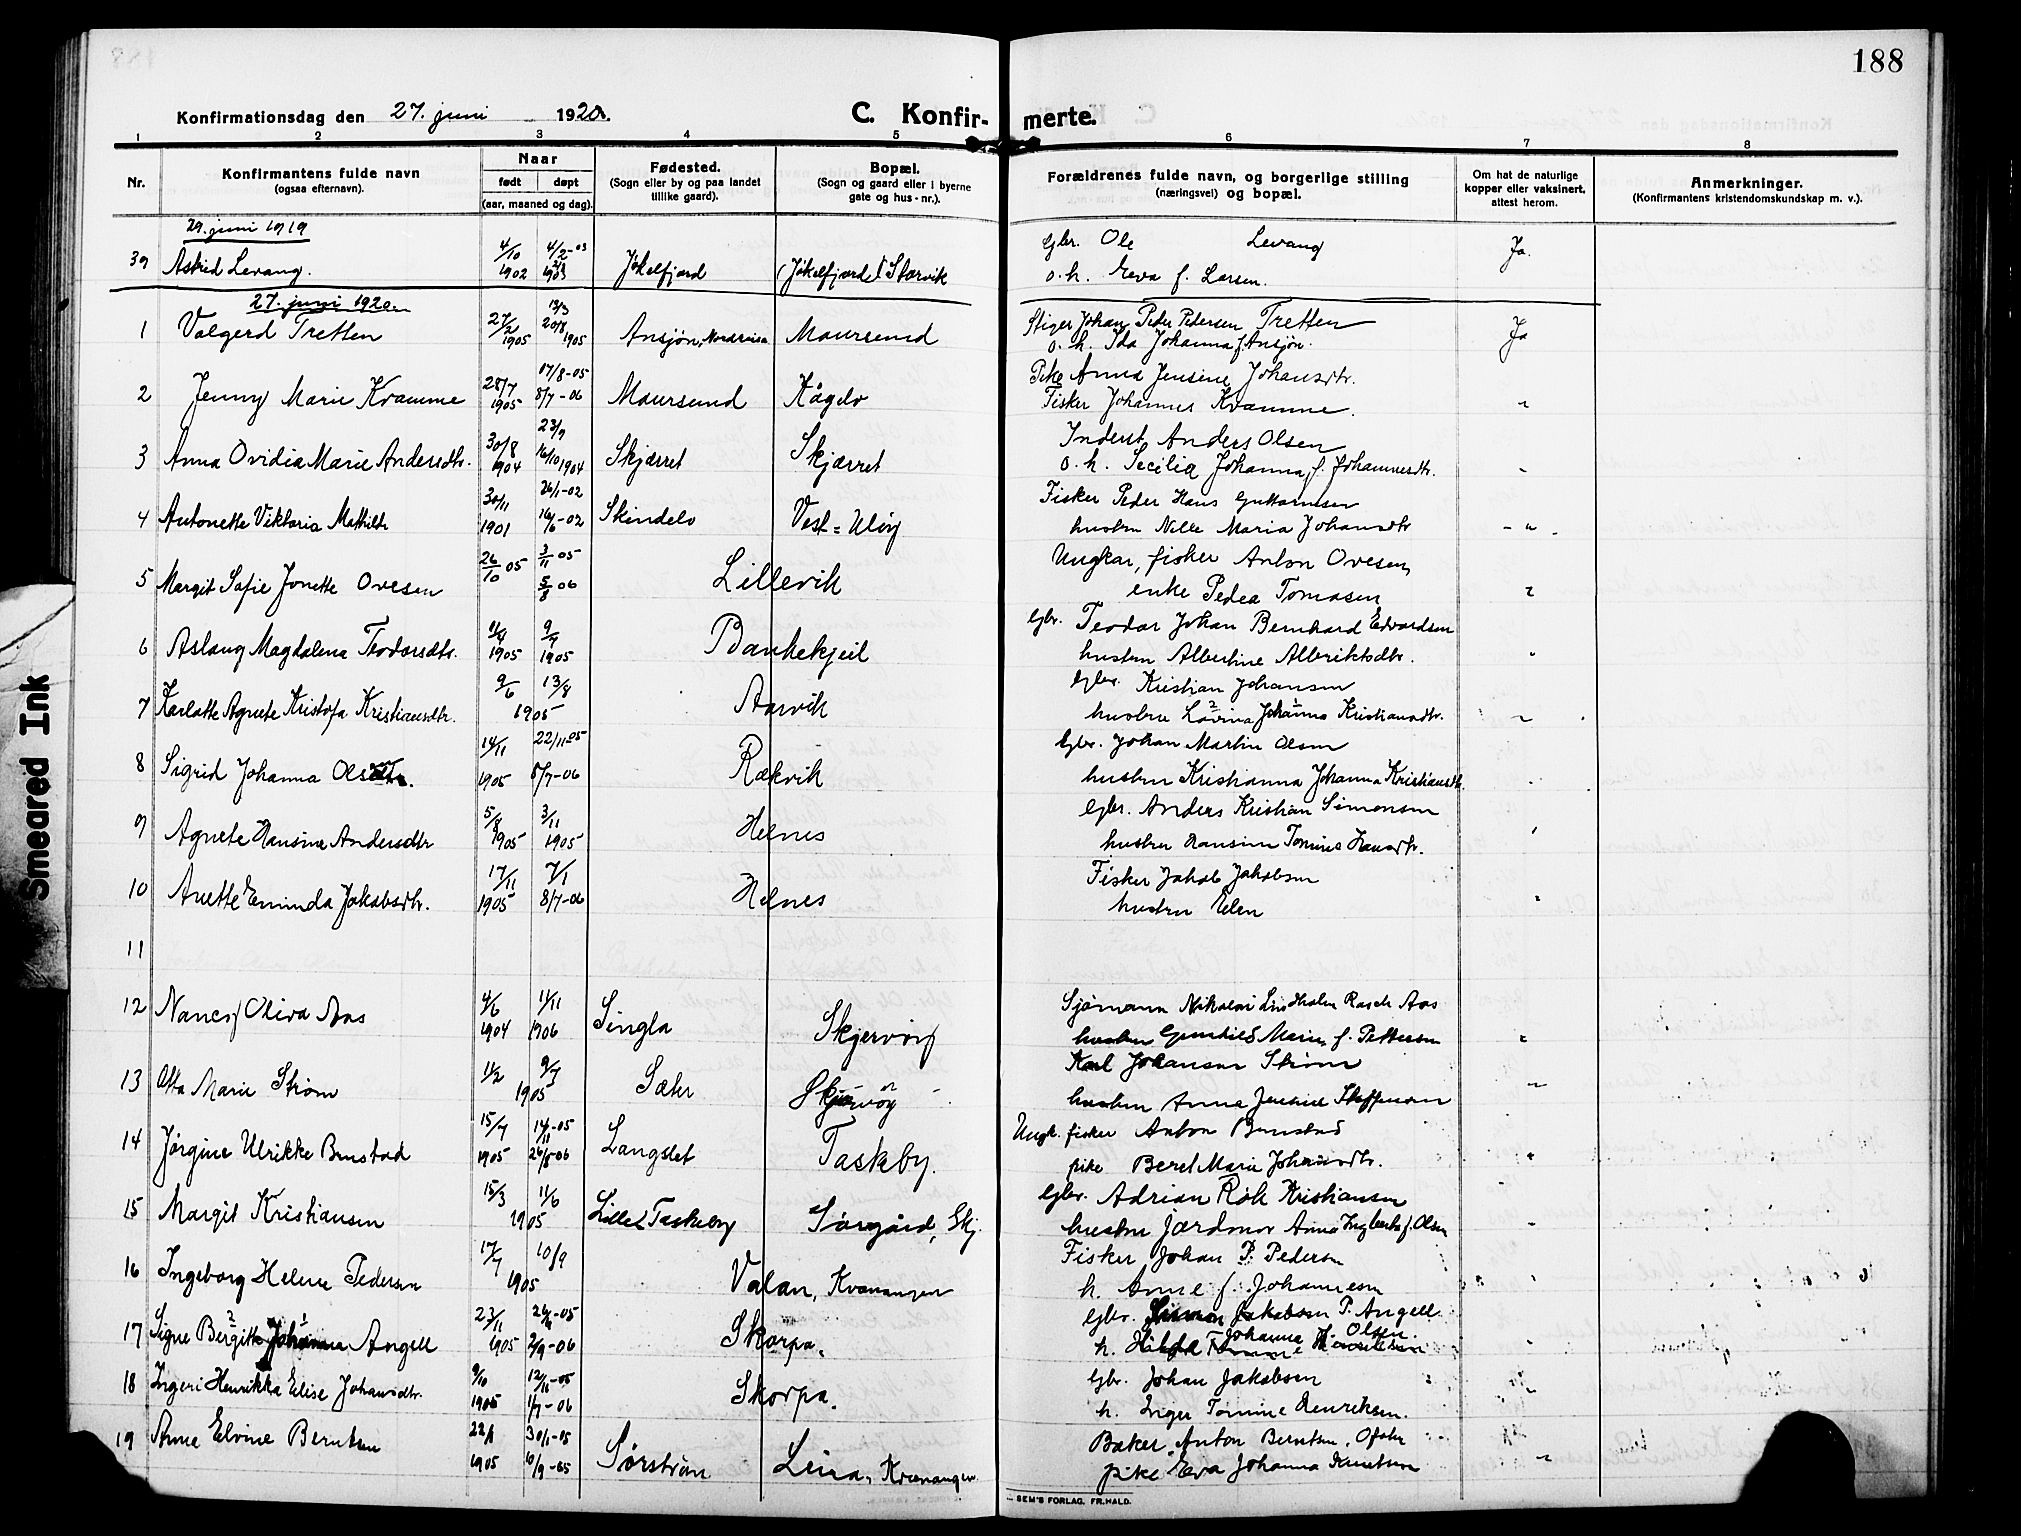 188
Konfirmationsdag den 27. juni 1920.
C. Konfir- merte.
1 2 3 4 5 6 7 8
Nr.
Konfirmantens fulde navn
(ogsaa efternavn).
Naar
født døpt
(aar, maaned og dag).
Fødested.
(Sogn eller by og paa landet
tillike gaard).
Bopæl.
(Sogn og gaard eller i byerne
gate og hus-nr.).
Forældrenes fulde navn, og borgerlige stilling
(næringsvei) og bopæl.
Om hat de naturlige
kopper eller vaksinert,
attest herom.
Anmerkninger.
(Konfirmantens kristendomskundskap m. v.).
29. juni 1919
39 Astrid Levang. 4/10 1902 4/2-03 1903 Jøkelfjord (Jøkelfjord) Storvik Gbr. Ole Levang Ja.
o. h. Eva f. Larsen.
27. juni 1920.
1 Valgerd Tretten 27/2 1905 13/3 20/8 1905 Ansjøn, Nordreisa Maursund Stiger Johan Peder Pedersen Tretten Ja
o. h. Ida Johanna f. Ansjøn.
2 Jenny Marie Kvamme 28/7 1905 17/8-05 8/7-06 Maursund Kågelv Pike Anna Jensine Johansdtr.
Fisker Johannes Kvamme. "
3 Anna Ovidia Marie Andersdtr. 30/8 1904 23/9 16/10 1904 Skjærret Skjærret Inderst Anders Olsen
o. h. Secilia Johanna f. Johannesdtr. "
4 Antonette Viktoria Mathildr 30/11 1901 26/1-02 16/6-02 Skindelv Vest-Uløy Fisker Peder Hans Guttormsen
hustru Nille Maria Johansdtr - " -
5 Margit Sofie Jonette Ovesen 26/10 05 3/11 05 5/8 06 Lillevik Ungkar, fisker Anton Ovesen,
enke Pedea Tomasen "
6 Aslaug Magdalena Teodorsdtr. 11/4 1905 9/7 1905 Bankekjeil Gbr. Teodor Johan Bernhard Edvardsen
hustru Albertine Albriktsdtr. "
7 Karlotte Agnete Kristofa Kristiansdtr. 9/6 13/8 1905 Aarvik Gbr. Kristian Johansen
hustru Lovina Johanna Kristiansdtr. "
8 Sigrid Johanna Olsdtr. 14/11 1905 22/11-05 8/7-06 Rækvik Gbr. Johan Martin Olsen
hustru Kristianna Johanna Kristiansdtr. "
9 Agnete Hansine Andersdtr 5/8 1905 3/11 1905 Helnes Gbr. Anders Kristian Simonsen
hustru Hansine Tomine Hansdtr. "
10 Anette Eminda Jakobsdtr. 17/11 1905 7/1 8/7-06 Helnes Fisker Jakob Jakobsen
hustru Elen "
11
12 Nancy Oliva Aas 4/6 1904 11/11 1906 Singla Skjervøy Sjømann Nikolai Lindholm Rasch Aas
hustru Gunhild Marie f. Pettersen "
13 Otta Marie Strøm 11/2 9/7 1905 Sæter Skjervøy Karl Johansen Strøm
hustru Anna Jensine Steffensen "
14 Jørgine Ulrikke Bunstad 15/7 1905 14/11-05 26/8-06 Langslet Taskeby. Ungk. fisker Anton Bunstad
pike Beret Marie Johansdtr. "
15 Margit Kristiansen 15/3 11/6 1905 Lille Taskeby Sørgård, Skj. Gbr. Adrian Røk Kristiansen
hustru jordmor Anna Ingeborg f. Olsen "
16 Ingeborg Helene Pedersen 17/7 10/9 1905 Valan, Kvænangen Fisker Johan P. Pedersen
h. Anne f. Johannesen "
17 Signe Bergitte Johanna Angell 23/11 1905 26/11-05 2/9-06 Skorpa. Gbr. Simon Jakobsen P. Angell
h. Hilda Johanna f. Olsen. "
18 Ingeri Henrikka Elise Johansdtr. 9/10 1905 12/11-05 1/7-06 Skorpa. Gbr. Johan Jakobsen
h. Inger Tomine Henriksen. "
19 Anna Elvine Berntsen 22/1 1905 30/1-05 10/9-05 Sørstrøm Leira, Kvænangen. Baker Anton Berntsen, Ofoten
pike Eva Johanna Knutsen "
SEM'S FORLAG, FR.HALD.
Smeared Ink